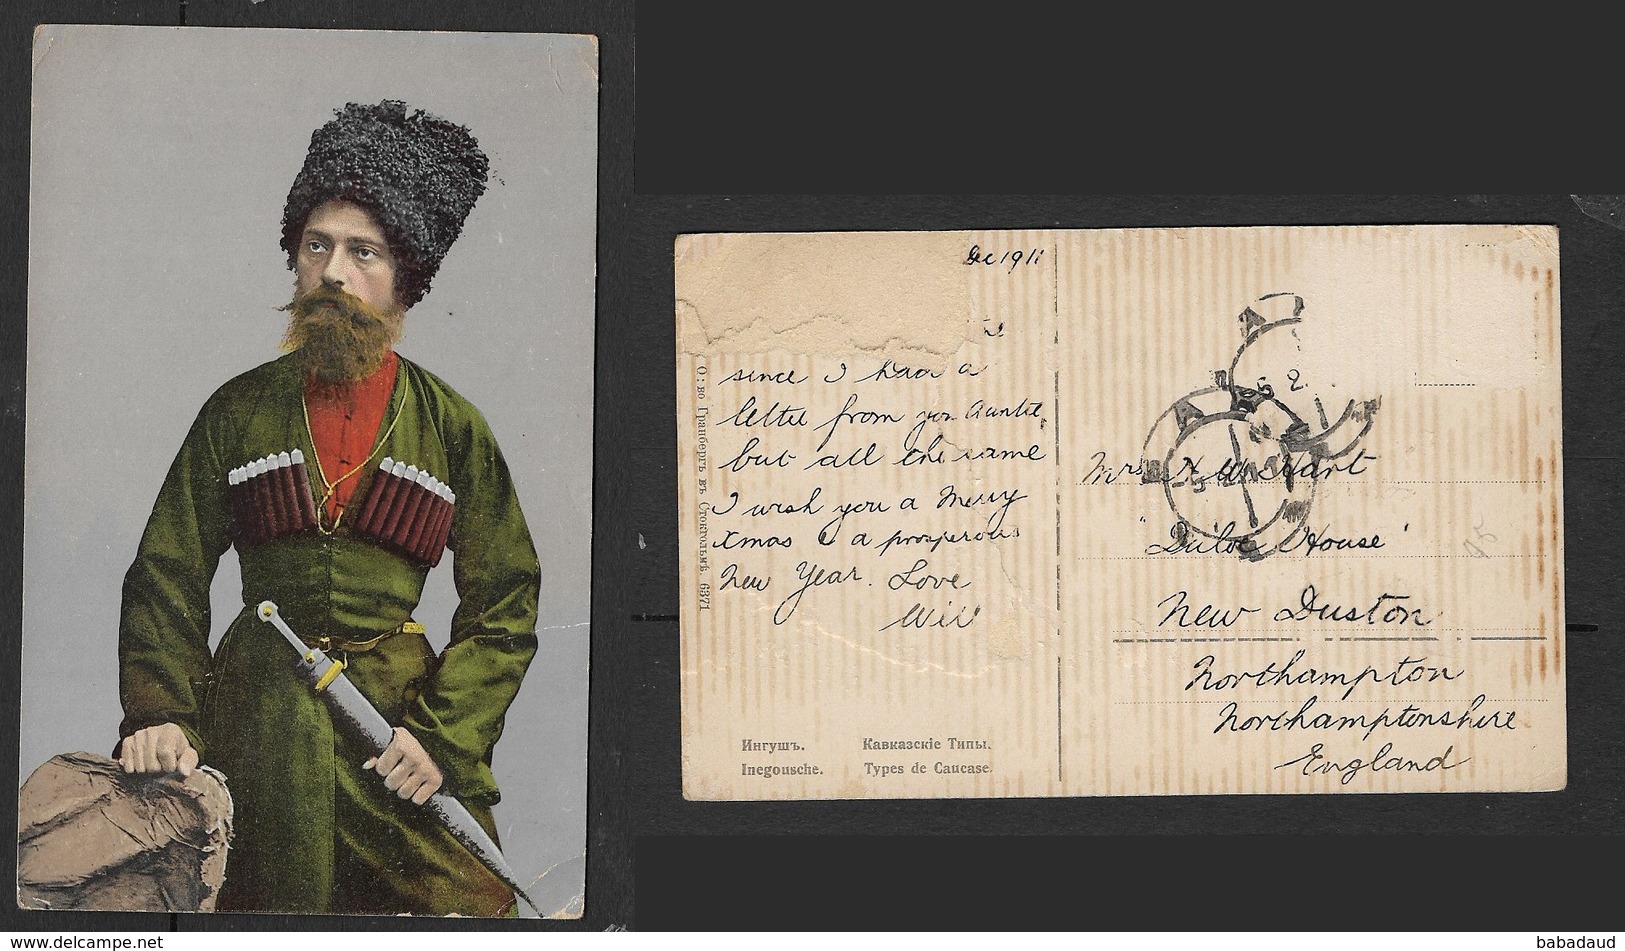 Dec 1911
since I had a
letter from you Auntie,
but all the same
I wish you a Merry
Xmas & a prosperous
New Year. Love
Will
О:во Гранбергъ въ Стокгольмѣ 6371
Ингушъ. Кавказскіе Типы.
Inegousche. Types de Caucase.
Mrs H. W. Hart
House
New Duston
Northampton
Northamptonshire
England
www.delcampe.net
babadaud